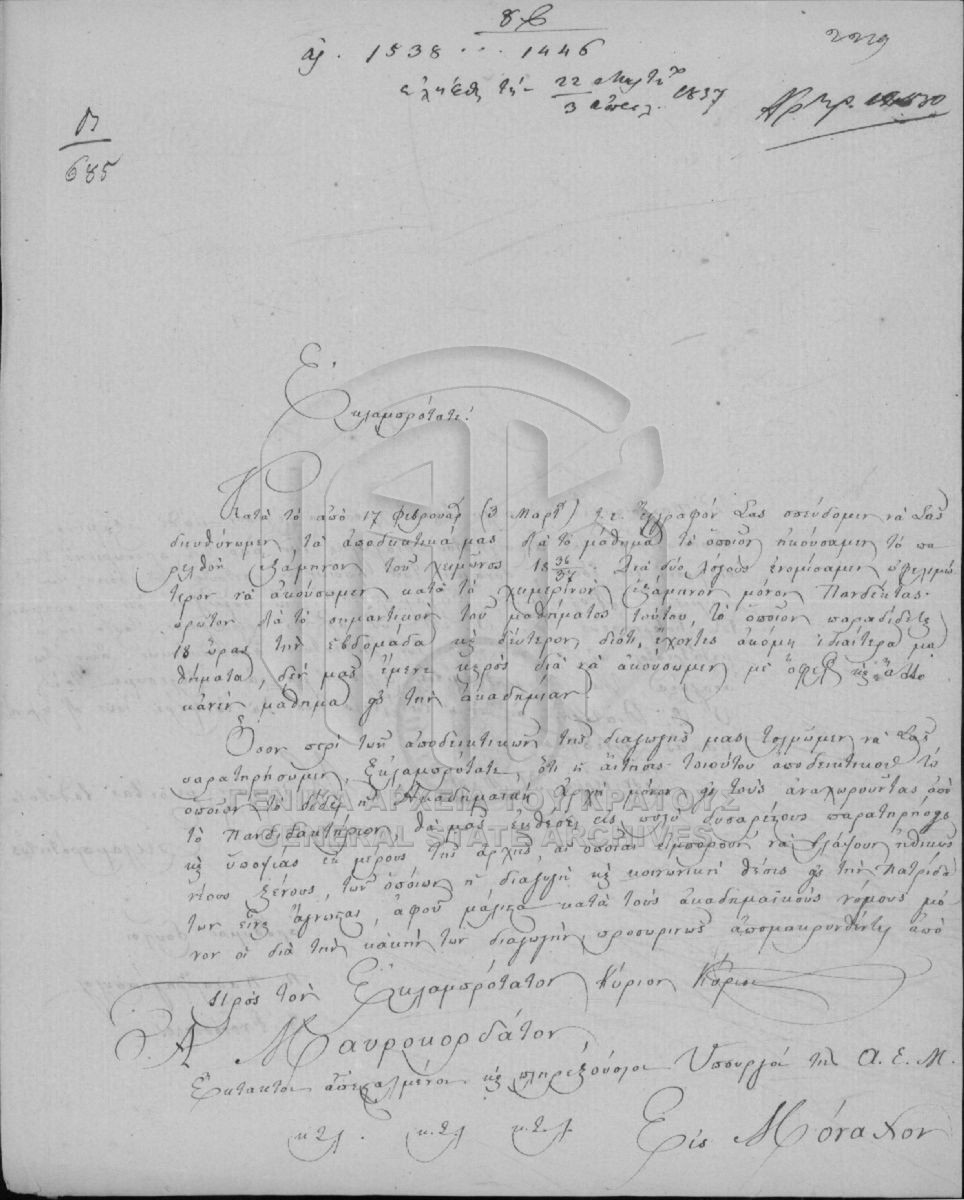 αρ. 1538 ... 1446
2229
ἐλήφθη τὴν 22 Μαρτίου / 3 Ἀπριλ. 1837
Π
685
Ἐκλαμπρότατε!
Κατὰ τὸ ἀπὸ 17 Φεβρουαρ (3 Μαρτ) τ. ἔ. ἔγγραφόν Σας σπεύδομεν νὰ Σᾶς
διευθύνωμεν τὰ ἀποδεικτικά μας διὰ τὸ μάθημα τὸ ὁποῖον ἠκούσαμεν τὸ πα
ρελθὸν ἑξάμηνον τοῦ χειμῶνος 18 36/37. Διὰ δύο λόγους ἐνομίσαμεν ὠφελιμώ
τερον νὰ ἀκούσωμεν κατὰ τὸ χειμερινὸν ἑξάμηνον μόνον Πανδέκτας.
πρῶτον διὰ τὸ σημαντικὸν τοῦ μαθήματος τούτου, τὸ ὁποῖον παραδίδεται
18 ὥρας τὴν ἑβδομάδα καὶ δεύτερον, διότι ἔχοντες ἀκόμη ἰδιαίτερα μα
θήματα, δέν μας ἔμενε καιρὸς διὰ νὰ ἀκούσωμεν με ὄφελος καὶ ἄλλο
κανὲν μάθημα εἰς τὴν ἀκαδημίαν.
Ὅσον περὶ τῶν ἀποδεικτικῶν τῆς διαγωγῆς μας τολμῶμεν νὰ Σᾶς
παρατηρήσωμεν, Ἐκλαμπρότατε, ὅτι ἡ αἴτησις τοιούτου ἀποδεικτικοῦ τὸ
ὁποῖον τὸ δίδει ἡ Ἀκαδημαϊκὴ Ἀρχὴ μόνον εἰς τοὺς ἀναχωροῦντας ἀπὸ
τὸ Πανδιδακτήριον θὰ μᾶς ἐκθέσει εἰς πολὺ δυσαρέστους παρατηρήσεις
καὶ ὑποψίας ἐκ μέρους τῆς ἀρχῆς, αἱ ὁποῖαι ἐμποροῦν νὰ βλάψουν ἠθικῶς
νέους ξένους, τῶν ὁποίων ἡ διαγωγὴ καὶ κοινωνικὴ θέσις εἰς τὴν Πατρίδα
των εἶναι ἄγνωστος, ἀφοῦ μάλιστα κατὰ τοὺς ἀκαδημαϊκοὺς νόμους μό
νον οἱ διὰ τὴν κακήν των διαγωγὴν προσωρινῶς ἀπομακρυνθέντες ἀπὸ
Πρὸς τὸν Ἐκλαμπρότατον Κύριον Κύριον
Α Μαυροκορδάτον
Ἔκτακτον ἀπεσταλμένον καὶ πληρεξούσιον Ὑπουργὸν τῆς Α. Ε. Μ.
κ.τ.λ. κ.τ.λ. κ.τ.λ.
Εἰς Μόναχον
ΓΕΝΙΚΑ ΑΡΧΕΙΑ ΤΟΥ ΚΡΑΤΟΥΣ
GENERAL STATE ARCHIVES